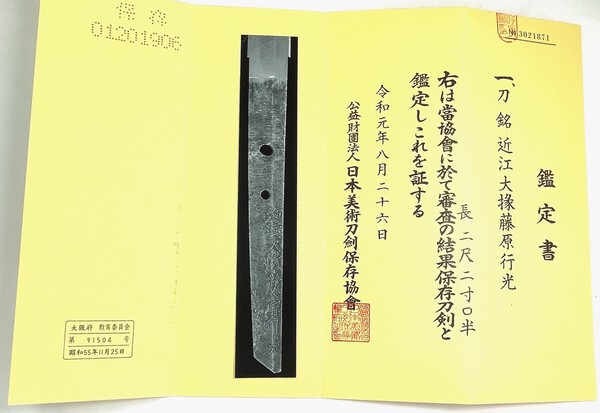 No 3021871
鑑定書
一、刀 銘 近江大掾藤原行光
長 二尺二寸〇半
右は當協會に於て審査の結果保存刀剣と
鑑定しこれを証する
令和元年八月二十六日
公益財團法人日本美術刀剣保存協會
保存
01201906
大阪府 教育委員会
第 91504 号
昭和55年11月25日